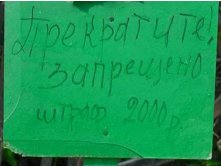 Прекратите!
запрещено
штраф 2000р